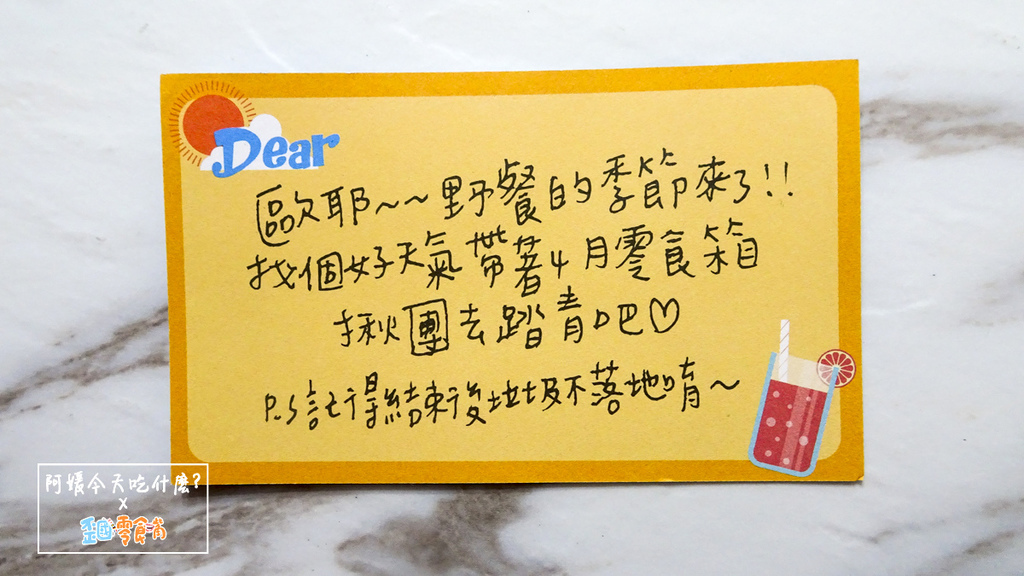 Dear
歐耶~~野餐的季節來了!!
找個好天氣帶著4月零食箱
揪團去踏青吧♡
P.S記得結束後垃圾不落地唷~
阿嬡今天吃什麼?
x
歪國零食嘴